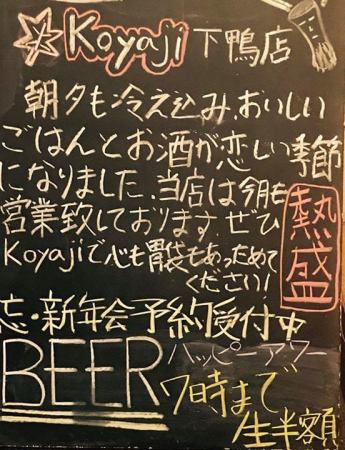 Koyaji 下鴨店
朝夕も冷え込み、おいしい
ごはんとお酒が恋しい季節
になりました。当店は今月も
営業致しております。ぜひ
Koyajiで心も胃袋もあっためて
ください!
熱盛
忘・新年会予約受付中
BEER ハッピーアワー
7時まで
生半額